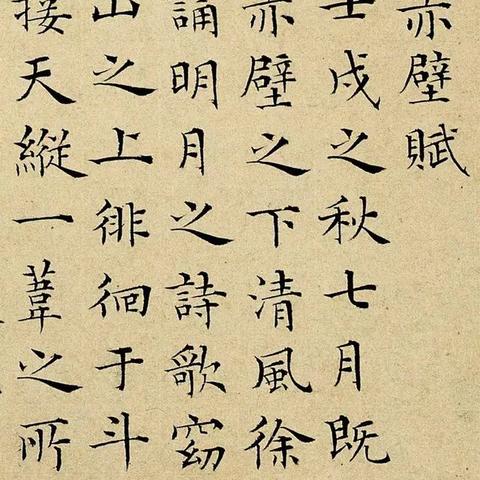 赤壁賦
壬戌之秋七月既
赤壁之下清風徐
誦明月之詩歌窈
山之上徘徊于斗
接天縱一葦之所